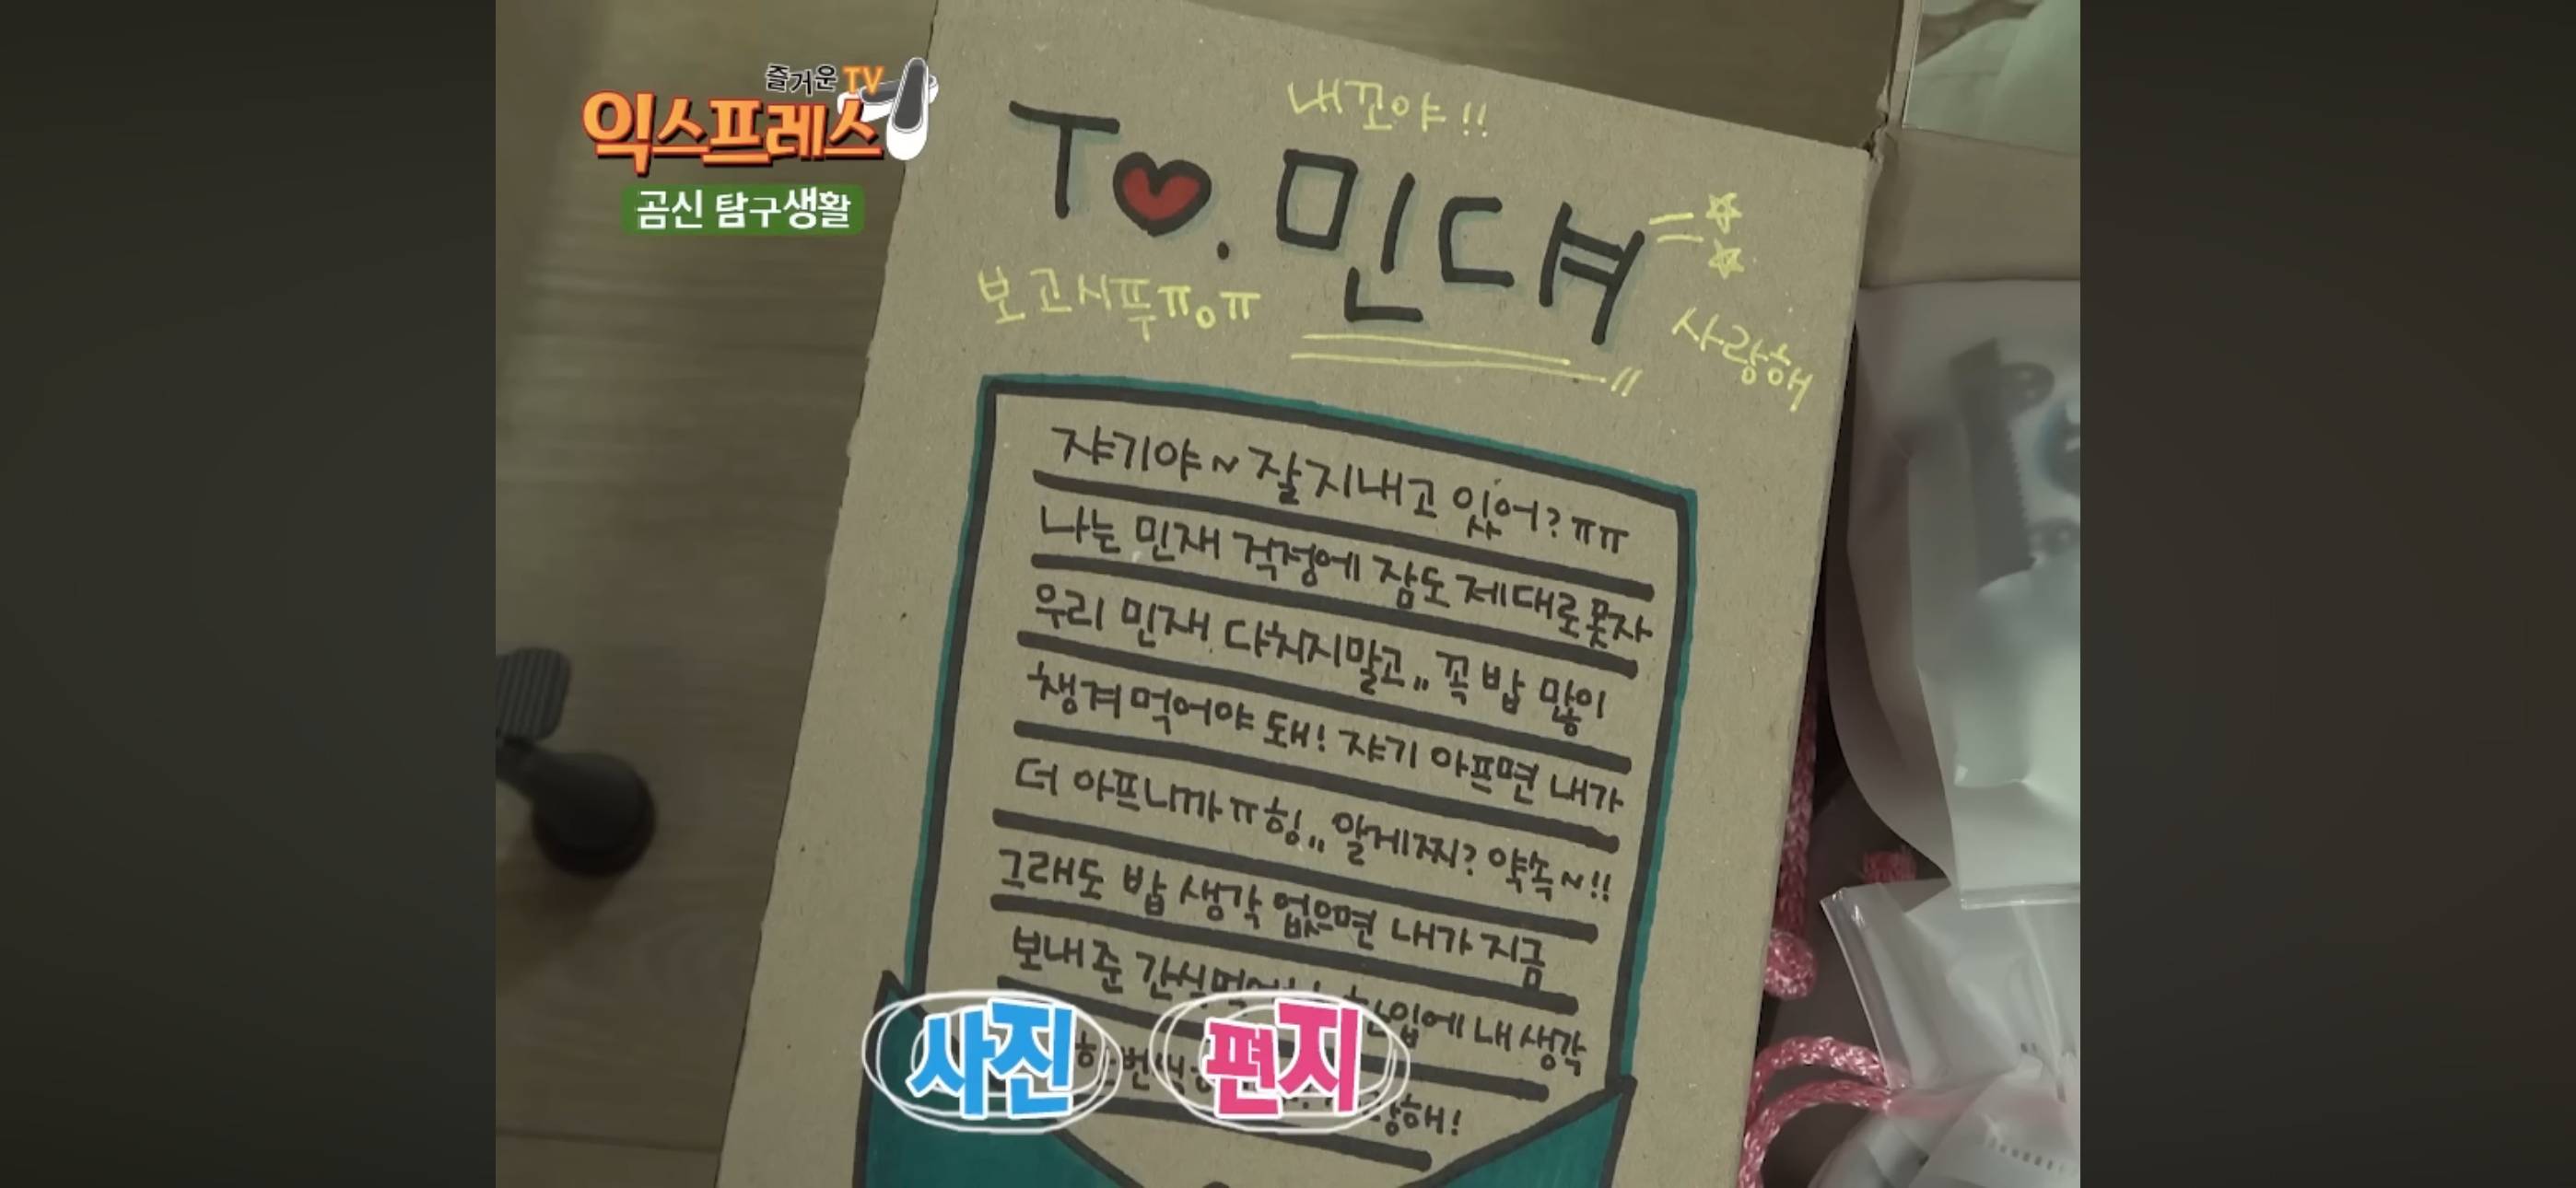 즐거운TV
익스프레스
곰신 탐구생활
내꼬야!!
To.민댜
보고시푸ㅠㅇㅠ
사랑해
쟈기야~ 잘지내고 있어?ㅠㅠ
나는 민재 걱정에 잠도 제대로 못자
우리 민재 다치지말고,, 꼭 밥 많이
챙겨 먹어야 돼! 쟈기 아프면 내가
더 아프니까ㅠ힝,, 알게찌? 약속~!!
그래도 밥 생각 없으면 내가 지금
보내준 간식 입에 내 생각
해!
사진 편지